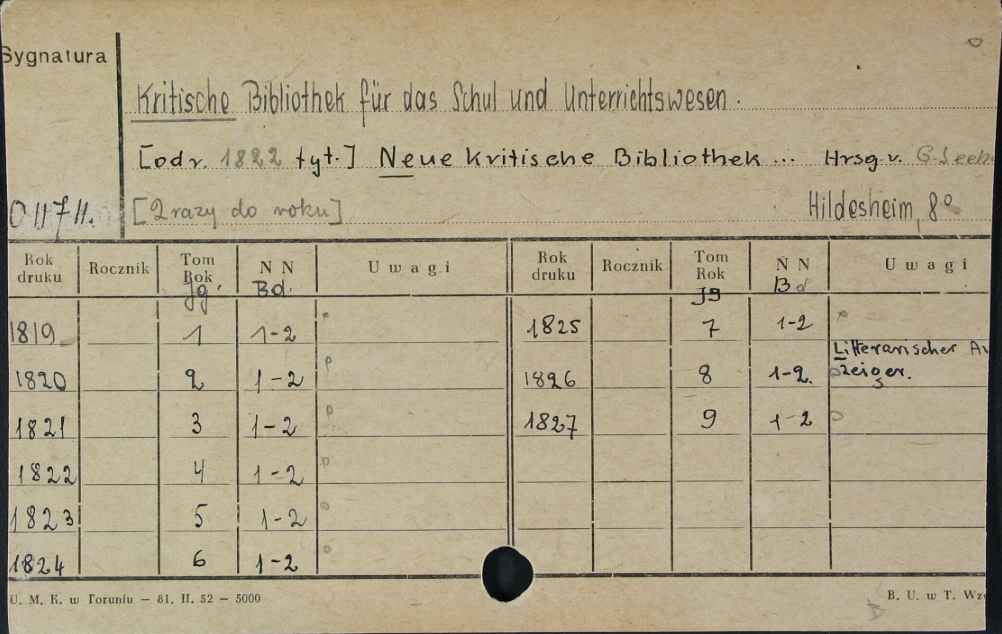 Sygnatura
Kritische Bibliothek für das Schul und Unterrichtswesen.
[od r. 1822 tyt.] Neue Kritische Bibliothek... Hrsg. v. G. Seeb
011711. [2 razy do roku] Hildesheim, 8°
Rok druku Rocznik Tom Rok Jg. N N Bd. Uwagi Rok druku Rocznik Tom Rok Jg N N Bd Uwagi
1819 1 1-2 p 1825 7 1-2 p
1820 2 1-2 p 1826 8 1-2. Litterarischer An
zeiger.
1821 3 1-2 p 1827 9 1-2
1822 4 1-2 p
1823 5 1-2
1824 6 1-2
U. M. K. w Toruniu — 81. II. 52 — 5000 B. U. w T. Wz